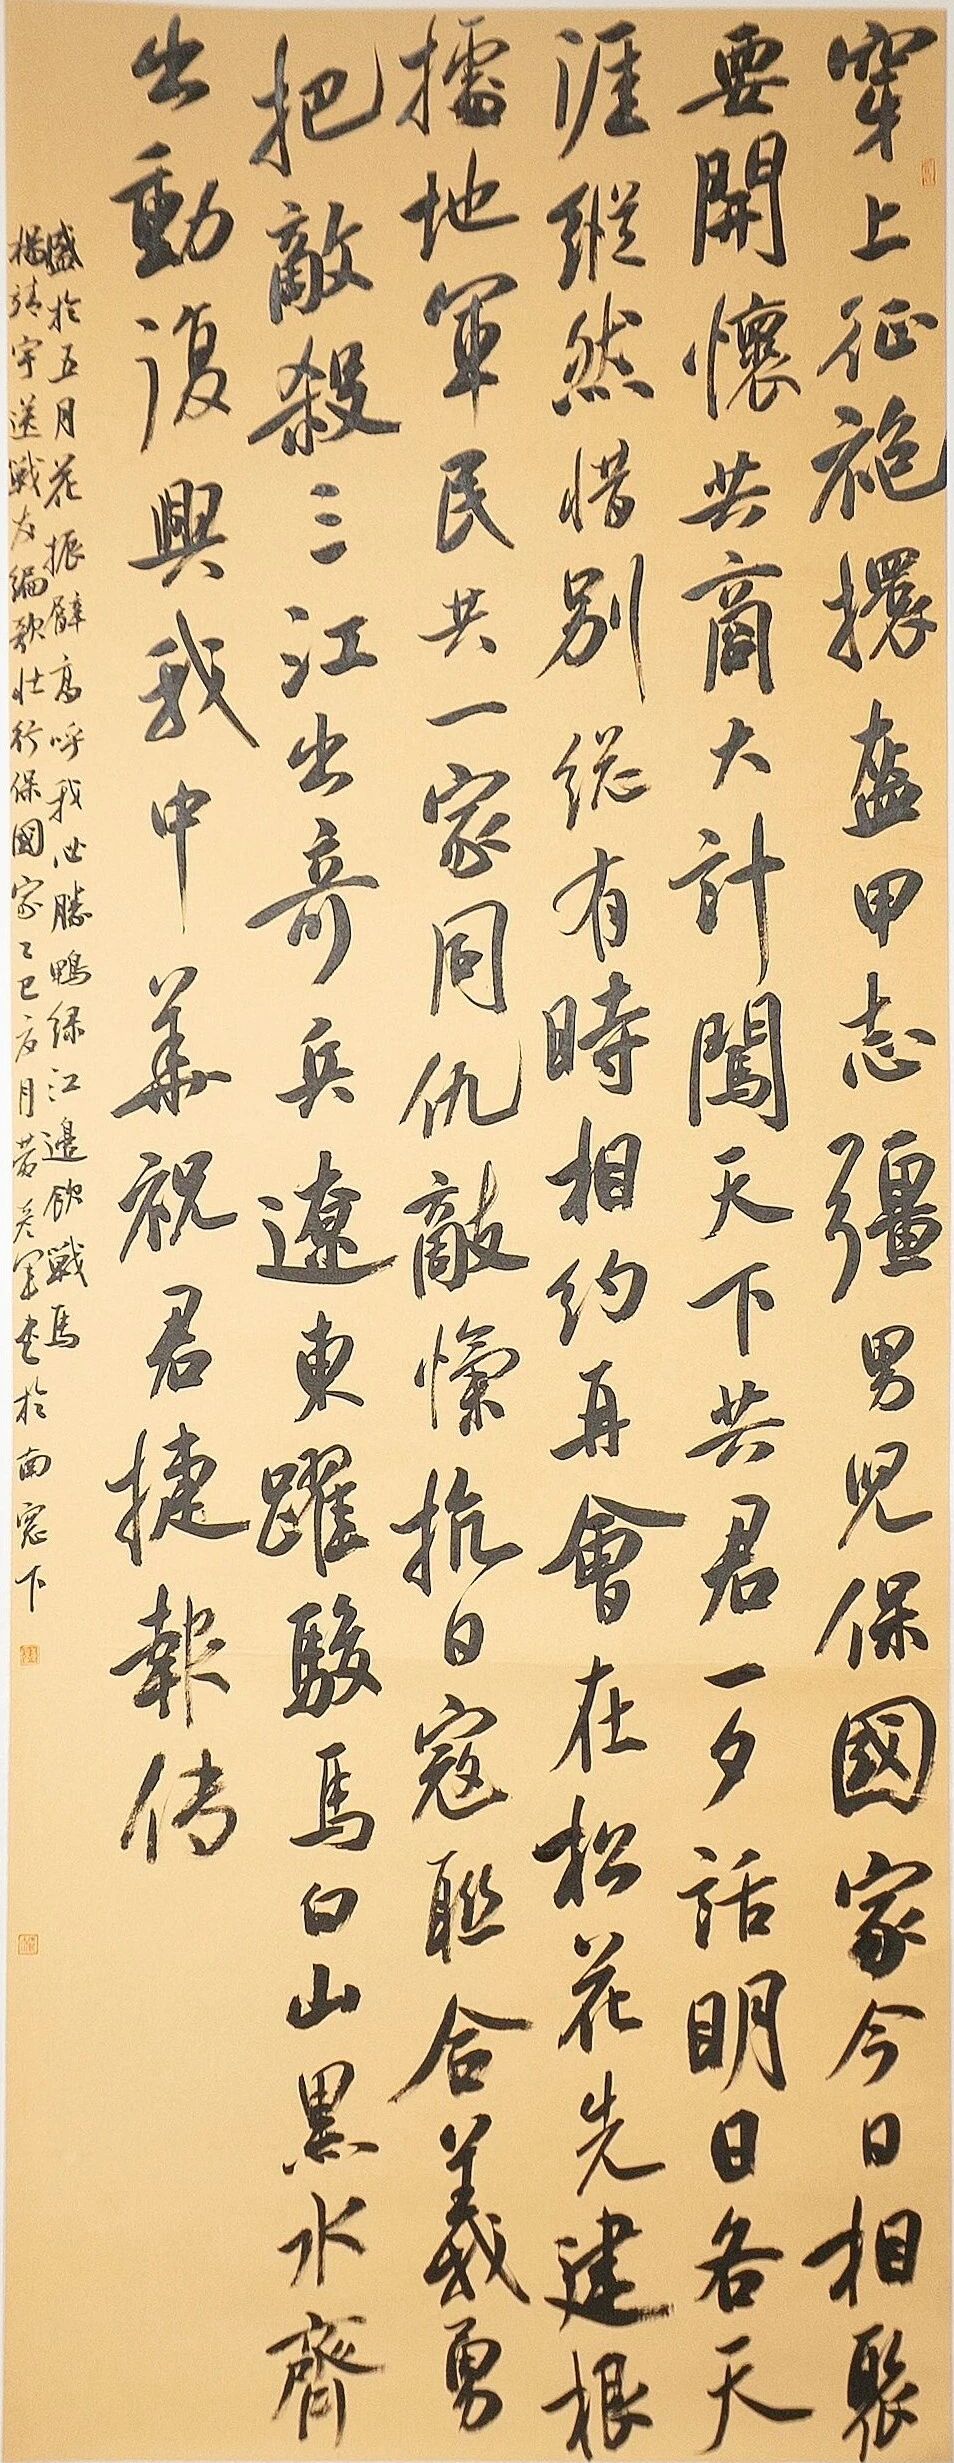 穿上征袍擐盔甲志彊男児保國家今日相聚
要開懷共商大計闖天下共君一夕話明日各天
涯縱然惜別總有時相約再會在松花先建根
據地軍民共一家同仇敵愾抗日寇聯合義勇
把敵殺三江出奇兵遼東躍駿馬白山黑水齊
出動復興我中華祝君捷報传
盛於五月花振臂高呼我必勝鴨绿江邊飲戰馬
楊靖宇送戰友編歌壮行保國家乙巳月軍书於南窓下